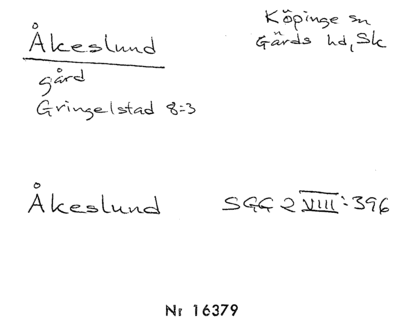 Åkeslund
Köpinge sn
Gärds hd, Sk
gård
Gringelstad 8:3
Åkeslund SGG 2 VIII:396
Nr 16379